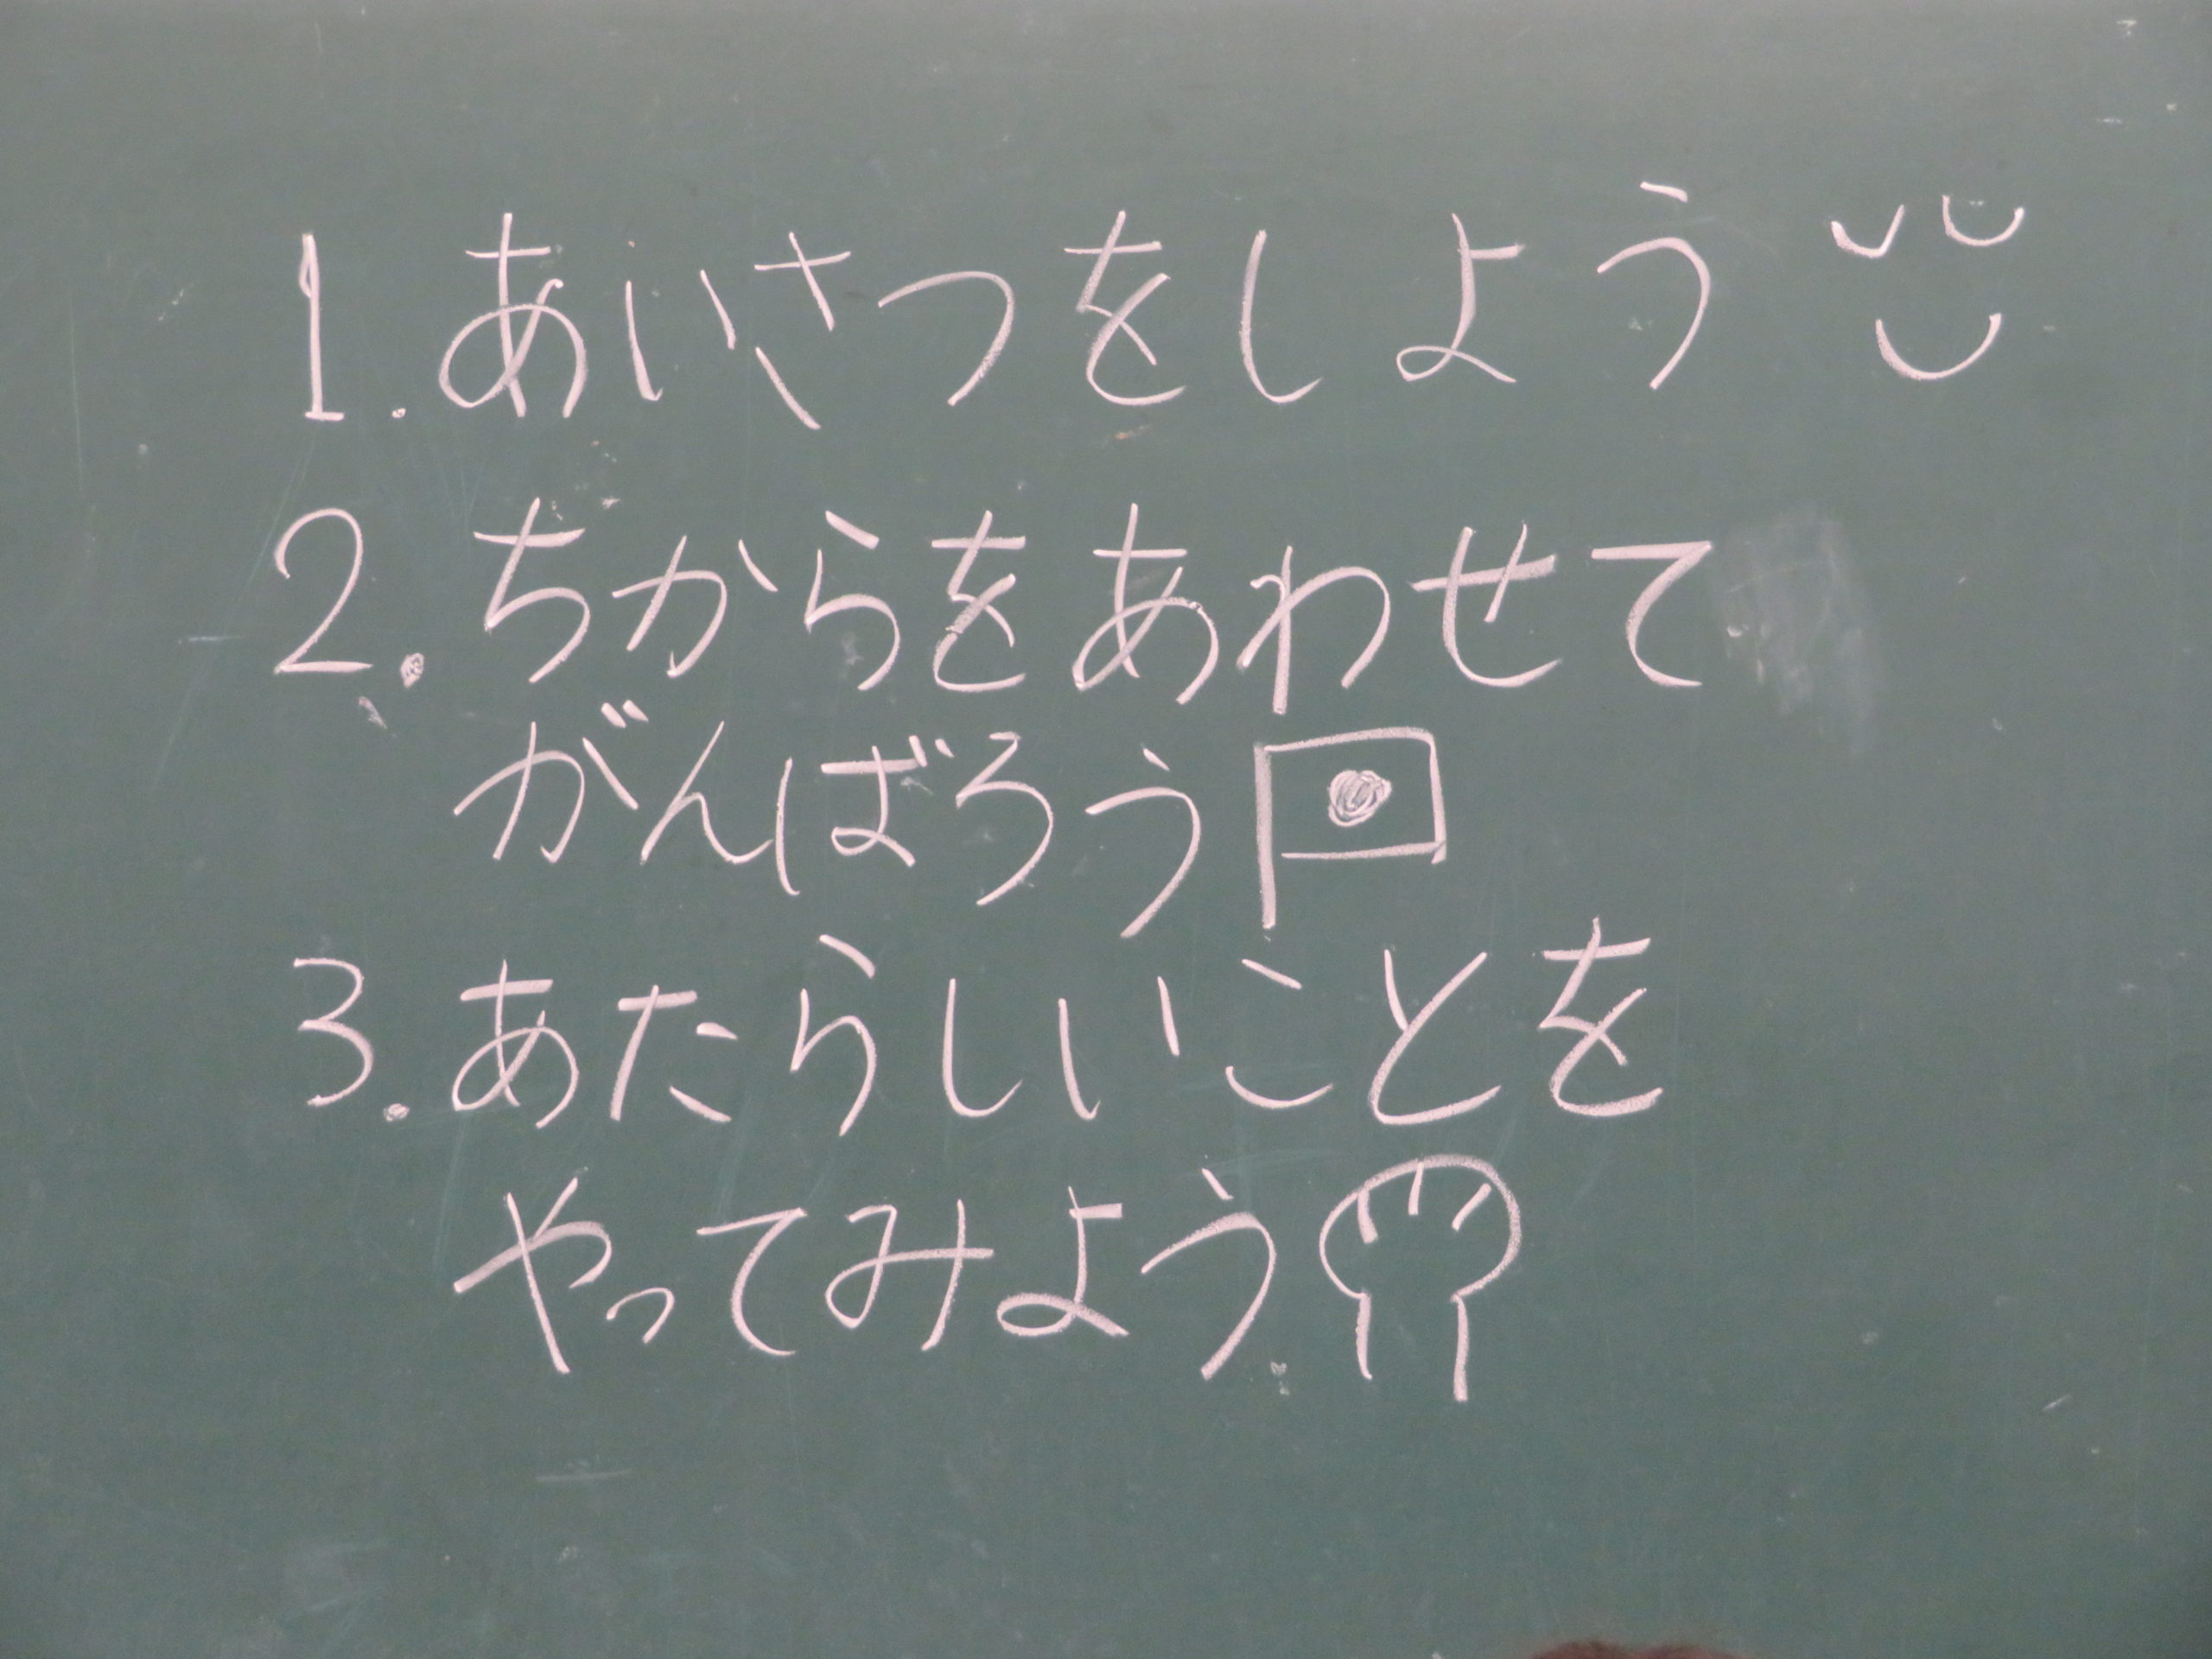 1. あいさつをしよう
2. ちからをあわせて
がんばろう
3. あたらしいことを
やってみよう